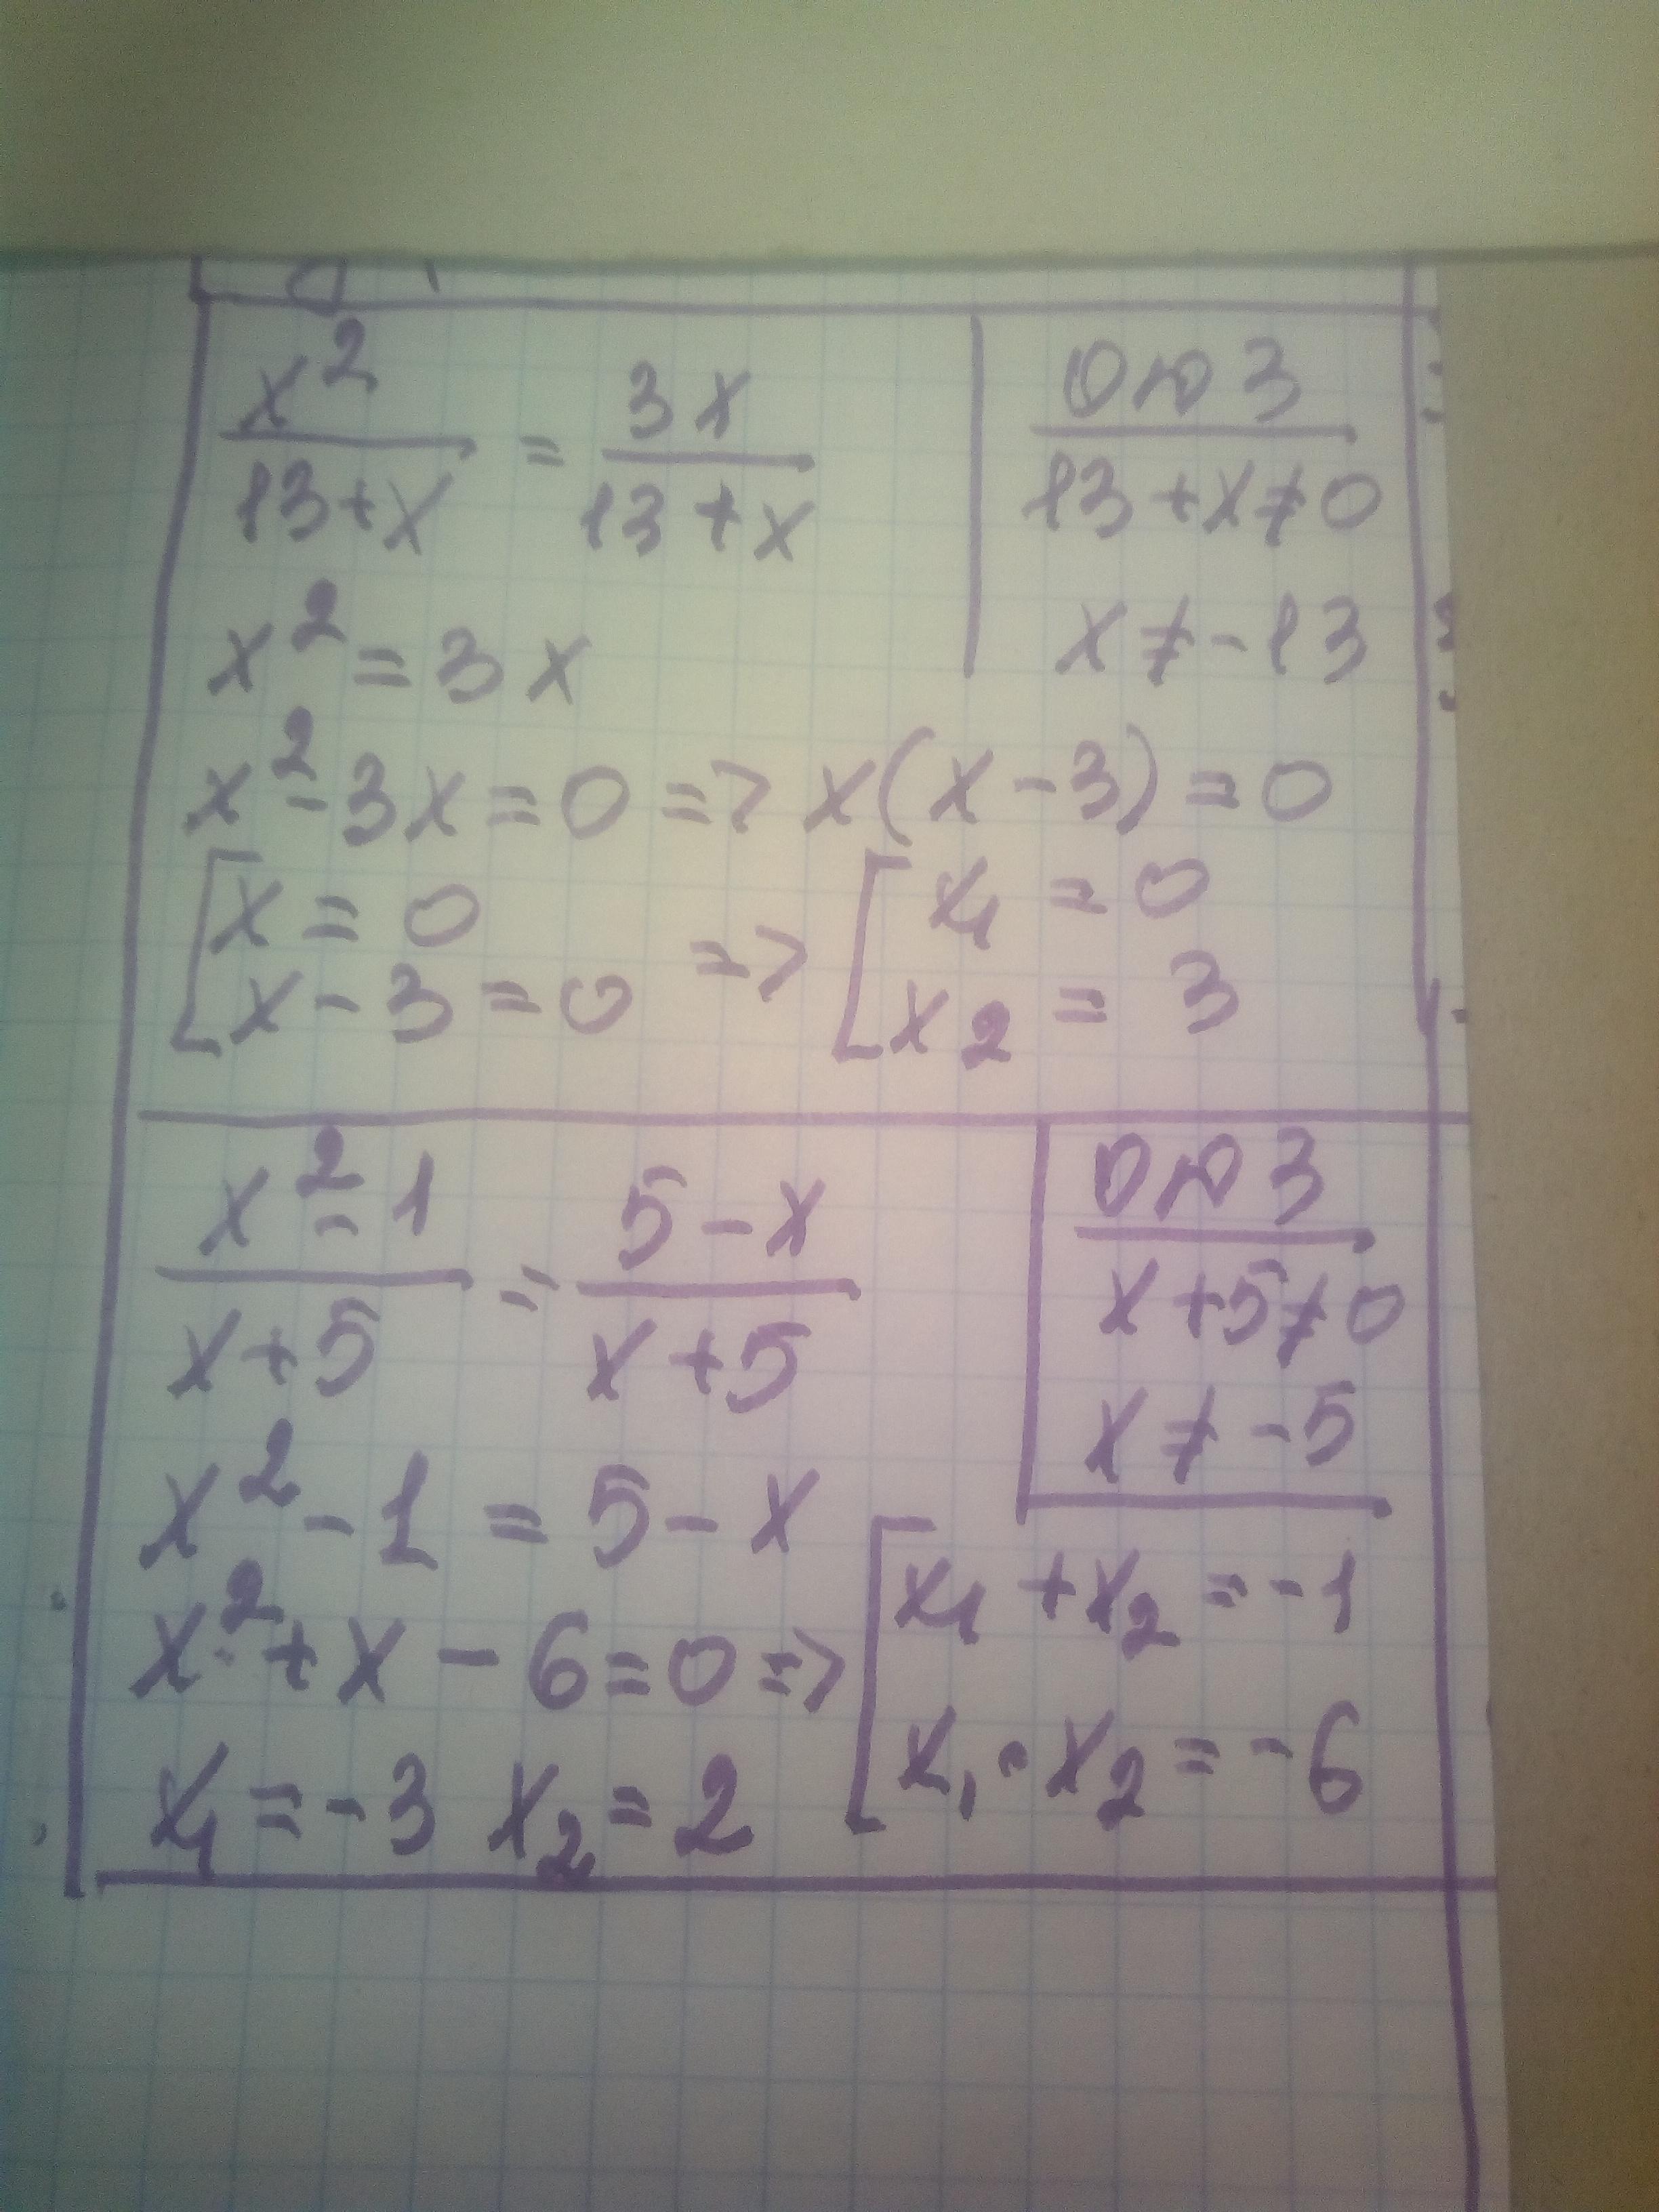 x² / 13+x = 3x / 13+x
ОДЗ
13+x≠0
x≠-13
x²=3x
x²-3x=0 => x(x-3)=0
[x=0 => [x₁=0
[x-3=0 [x₂=3
x²-1 / x+5 = 5-x / x+5
ОДЗ
x+5≠0
x≠-5
x²-1=5-x
x²+x-6=0 => [x₁+x₂=-1
[x₁·x₂=-6
x₁=-3 x₂=2